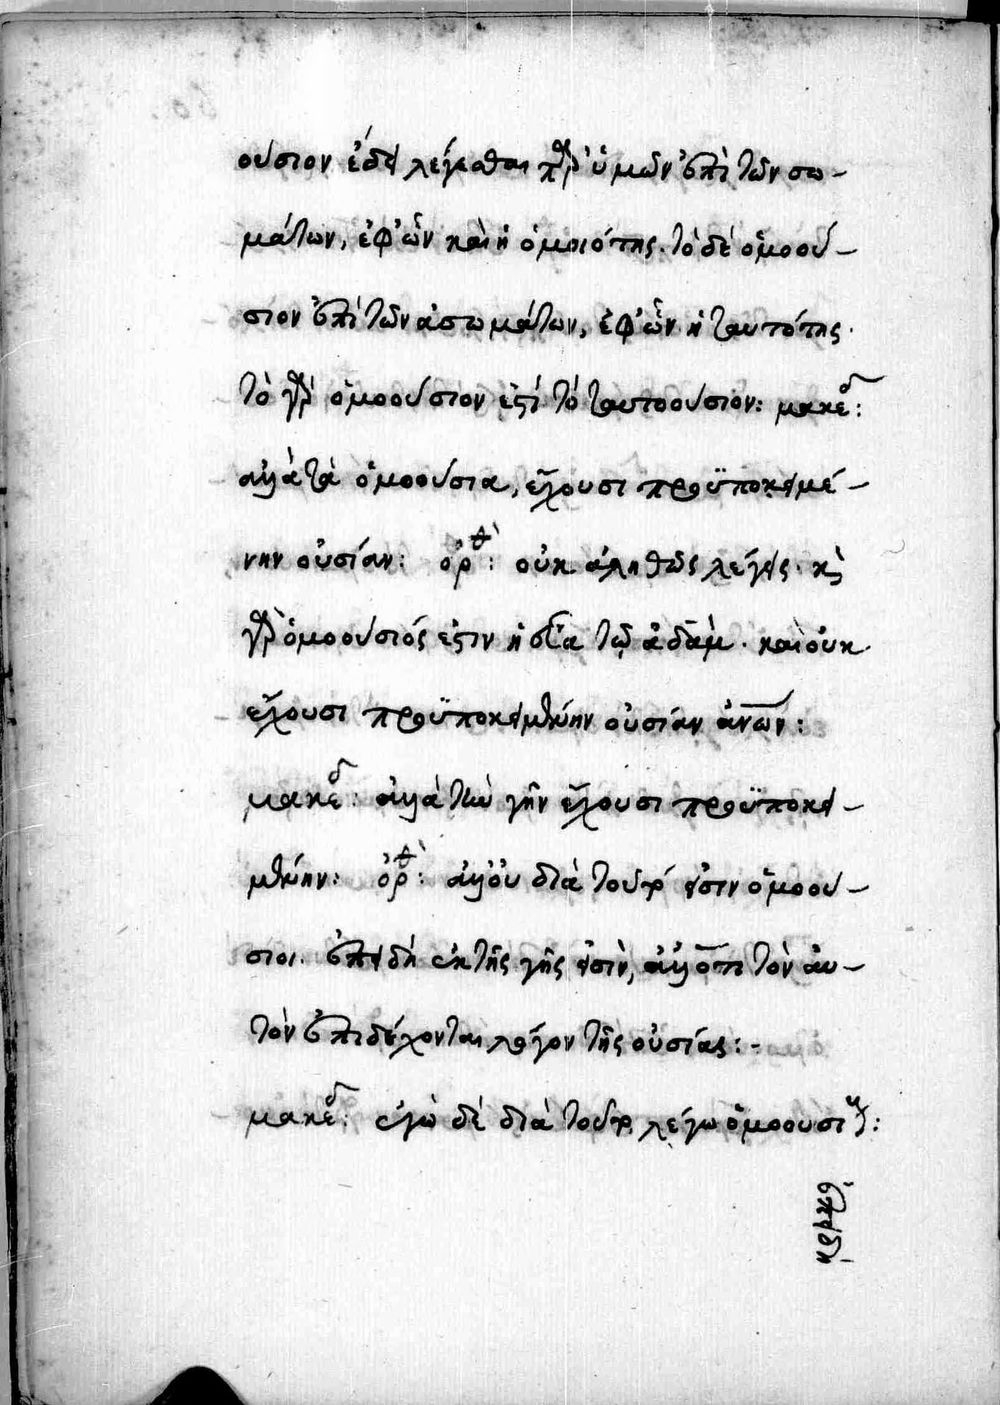 ούσιον ἔδει λέγεσθαι παρ' ὑμῶν ἐπὶ τῶν σω-
μάτων, ἐφ' ὧν καὶ ἡ ὁμοιότης. τὸ δὲ ὁμοού-
σιον ἐπὶ τῶν ἀσωμάτων, ἐφ' ὧν ἡ ταυτότης.
τὸ γὰρ ὁμοούσιον ἐστὶ τὸ ταυτοούσιον: μακεδ:
ἀλλὰ τὰ ὁμοούσια, ἔχουσι προϋποκειμέ-
νην οὐσίαν: ὀρθ: οὐκ ἀληθῶς λέγεις. καὶ
γὰρ ὁμοούσιός ἐστιν ἡ εὔα τῷ ἀδάμ. καὶ οὐκ
ἔχουσι προϋποκειμένην οὐσίαν ἀνων:
μακεδ: ἀλλὰ τὴν γῆν ἔχουσι προϋποκει-
μένην: ὀρθ: ἀλλ' οὐ διὰ τοῦτό εἰσιν ὁμοού-
σιοι. ἐπειδὴ ἐκ τῆς γῆς εἰσὶν, ἀλλ' ὅτι τὸν αὐ-
τὸν ἐπιδέχονται λόγον τῆς οὐσίας:-
μακεδ: ἐγὼ δὲ διὰ τοῦτο λέγω ὁμοουσι:
ἐπειδὴ